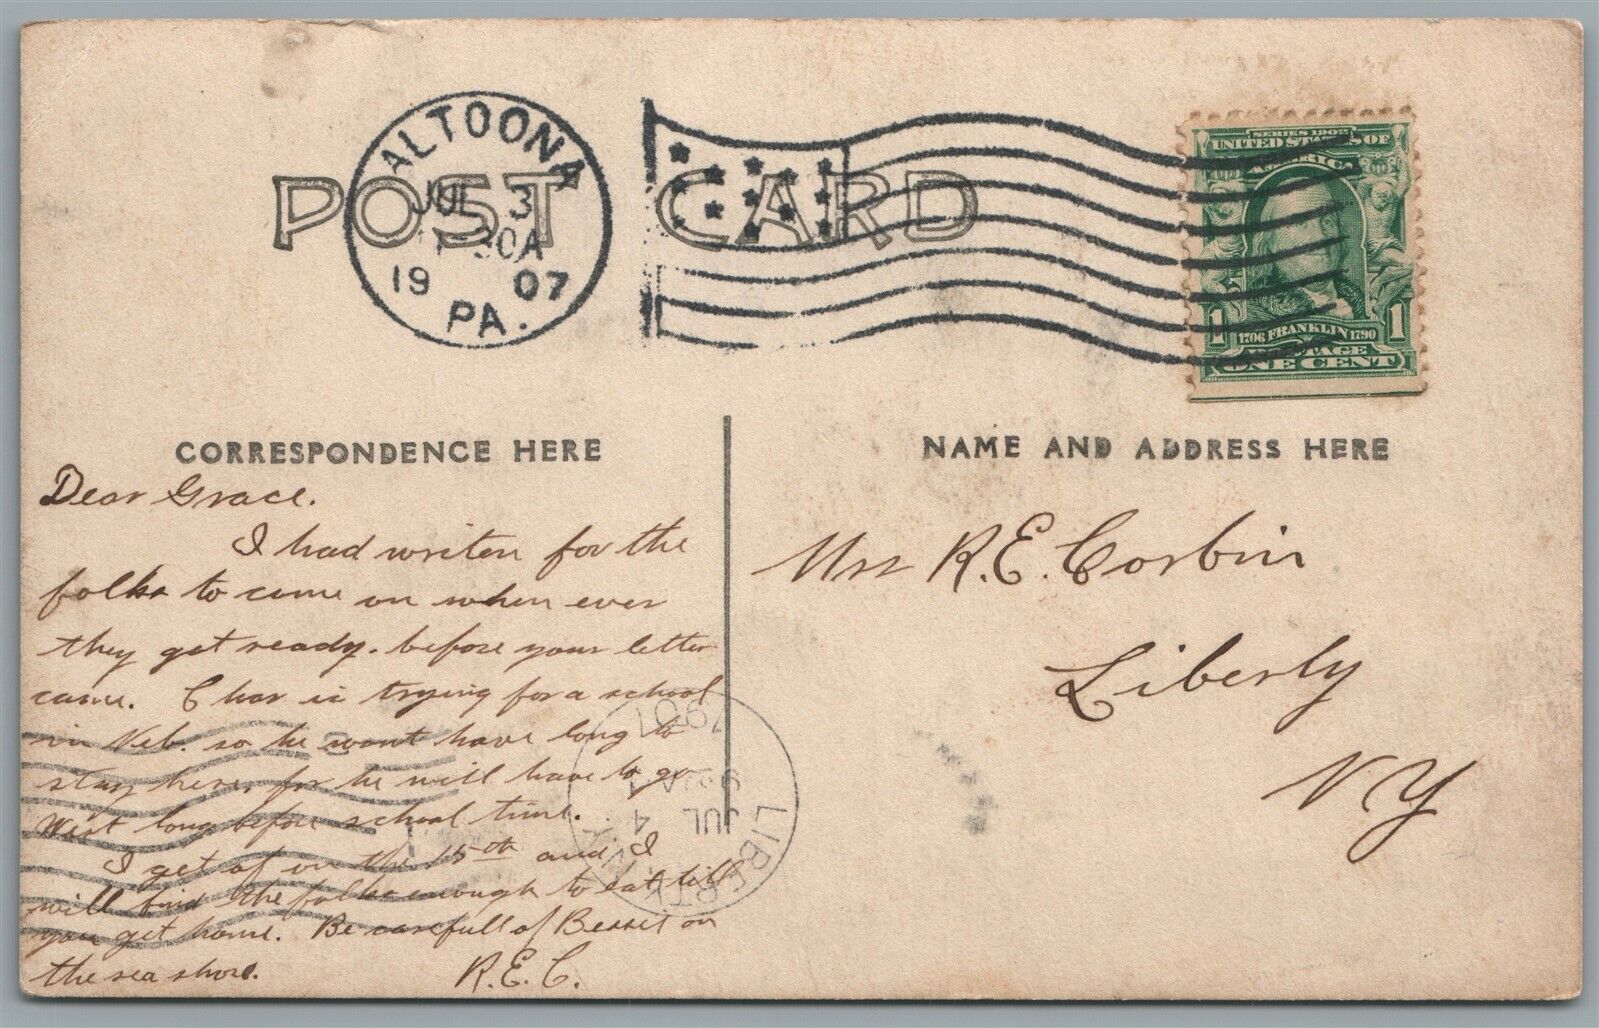 ALTOONA
JUL 3
30A
19 07
PA.
POST CARD
SERIES 1902
UNITED STATES OF
AMERICA
1 1706 FRANKLIN 1790 1
POSTAGE
ONE CENT
CORRESPONDENCE HERE
Dear Grace.
I had writen for the
folks to come on when ever
they get ready. before your letter
came. Char is trying for a school
in Neb. so he wont have long to
stay here, for he will have to go
West long before school time.
I get of on the 15th and I
will find the folks enough to eat till
you get home. Be carefull of Bessie on
the sea shore.
R.E.C.
NAME AND ADDRESS HERE
Mrs R.E. Corbin
Liberty
NY
LIBERTY
JUL 4
1907